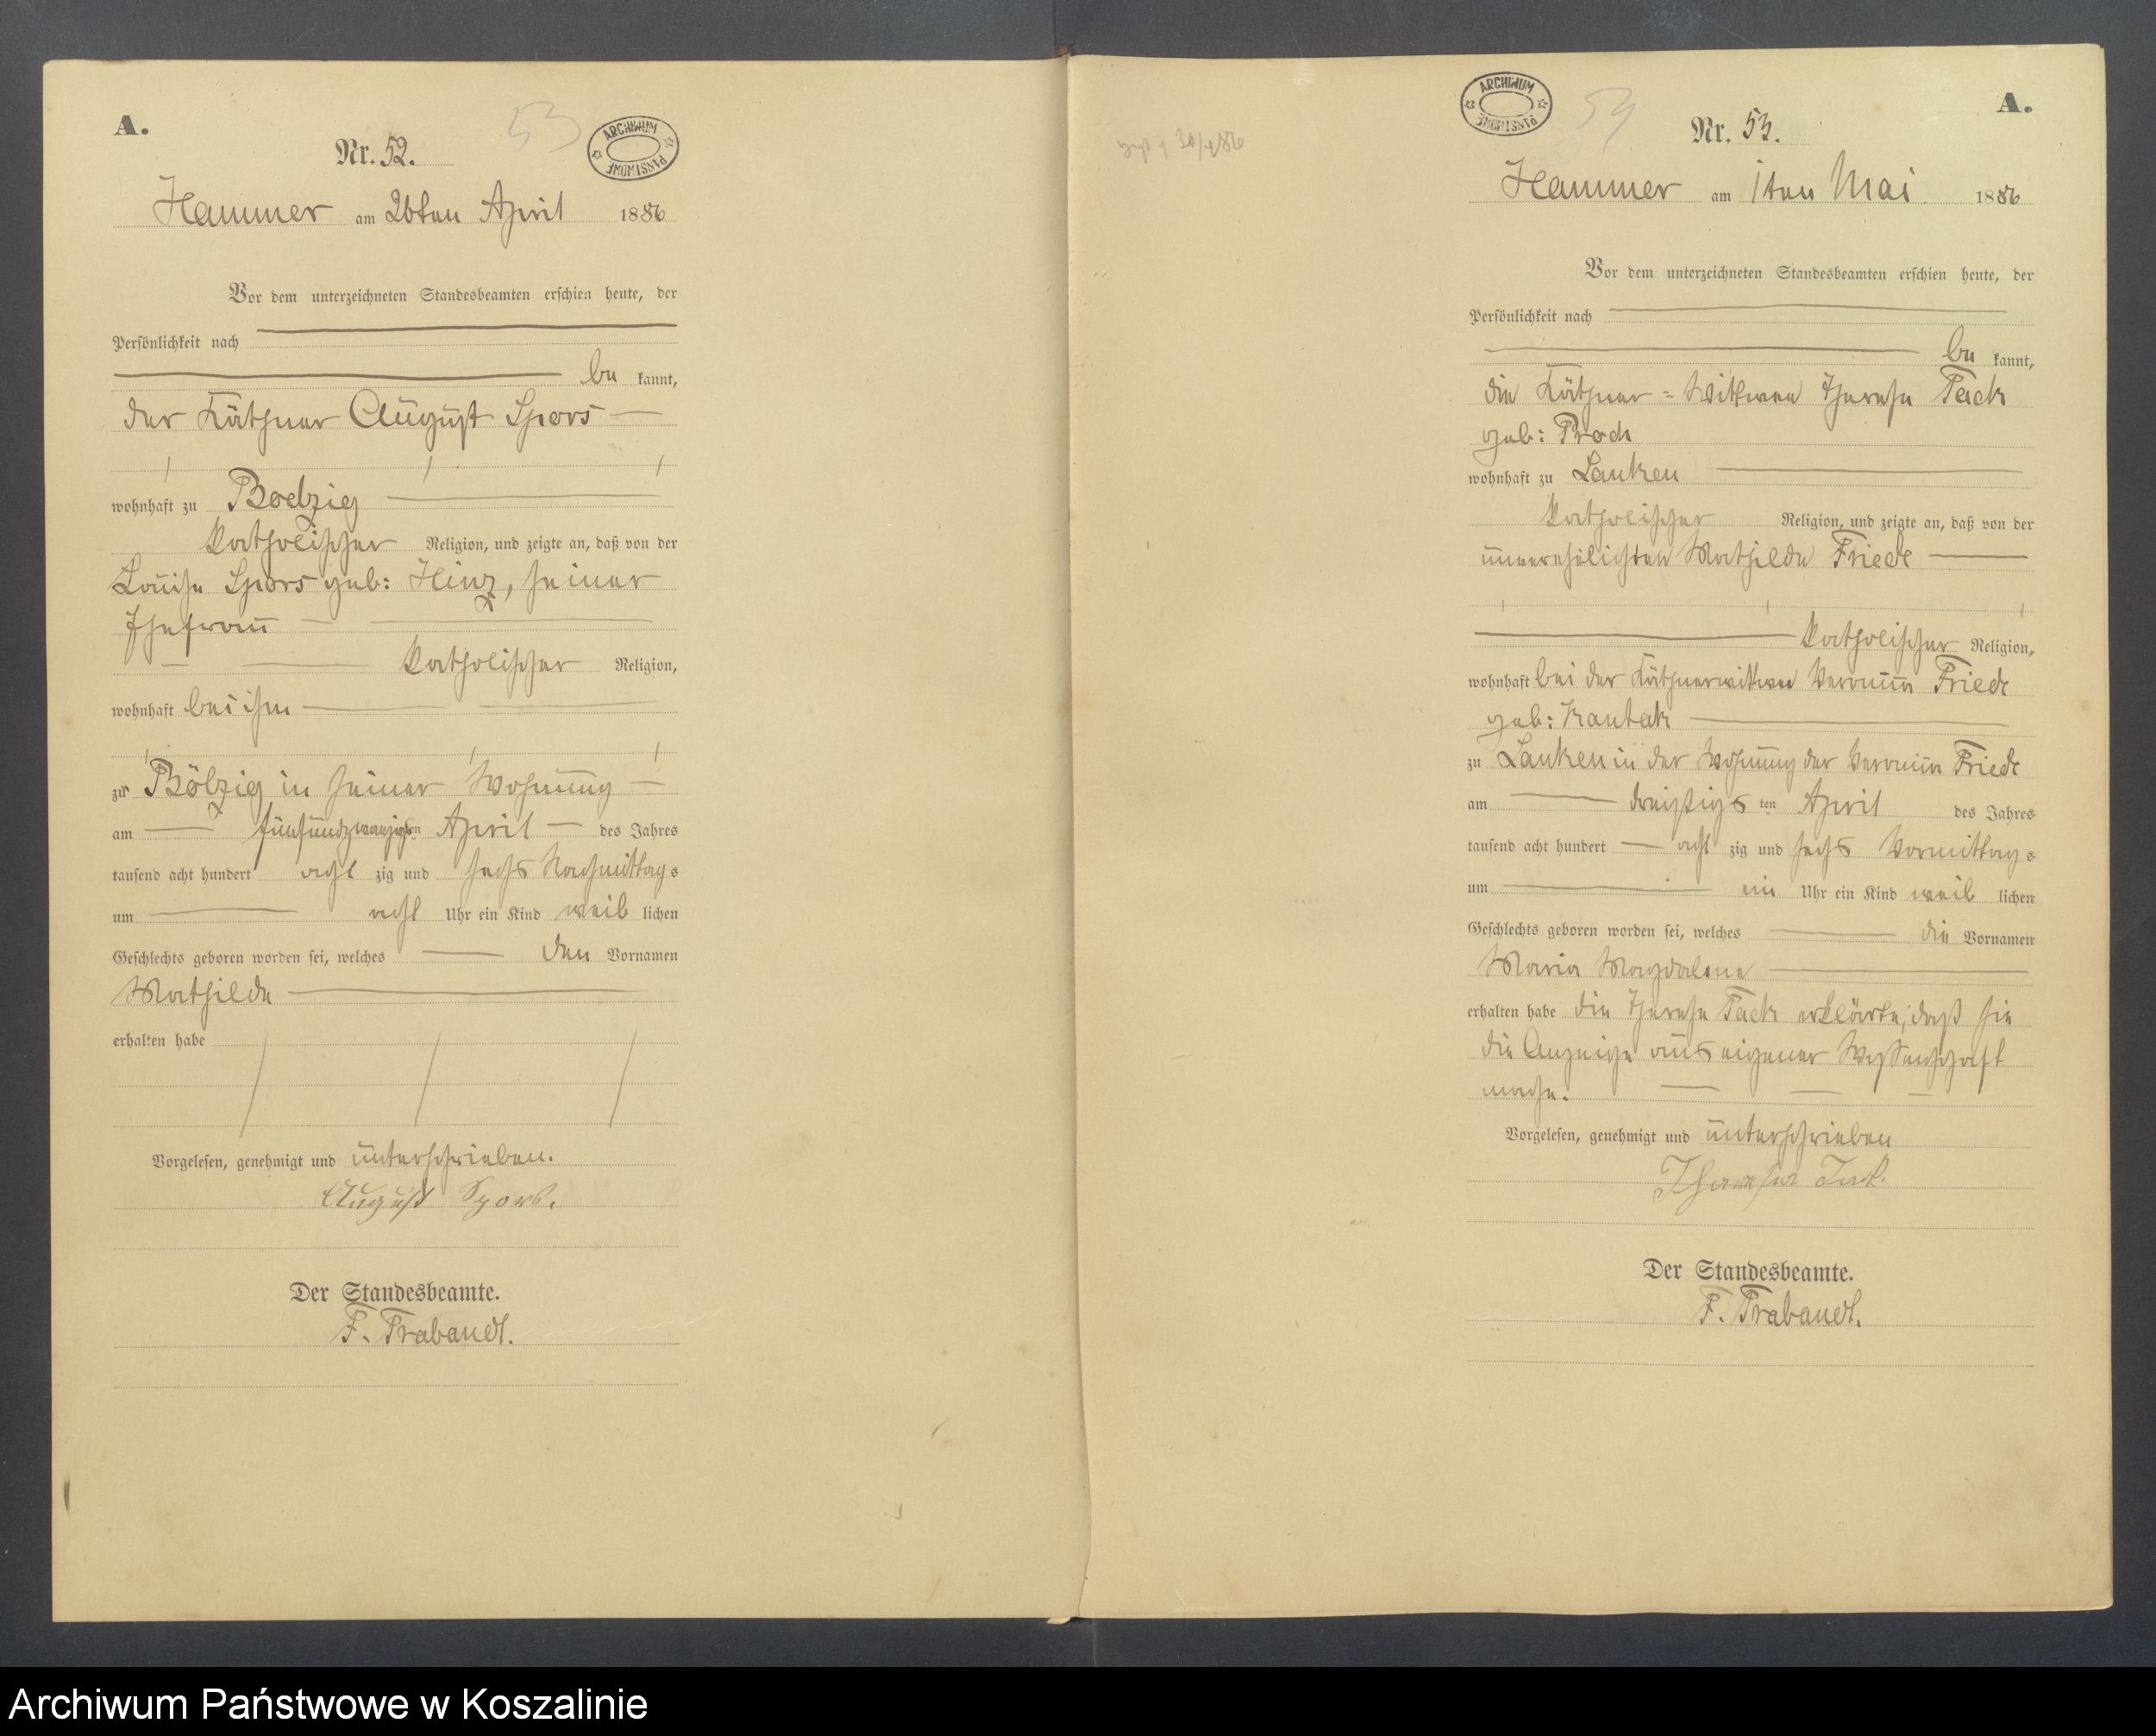 A.
53
ARCHIWUM PAŃSTWOWE
Nr. 52.
Hammer am 26ten April 1886
Vor dem unterzeichneten Standesbeamten erschien heute, der
Persönlichkeit nach
be kannt,
der Käthner August Spors
wohnhaft zu Boelzig
katholischer Religion, und zeigte an, daß von der
Louise Spors geb: Hinz, seiner
Ehefrau
katholischer Religion,
wohnhaft bei ihm
zu Bölzig in seiner Wohnung
am fünfundzwanzigsten April des Jahres
tausend acht hundert acht zig und sechs Nachmittags
um acht Uhr ein Kind weib lichen
Geschlechts geboren worden sei, welches den Vornamen
Mathilde
erhalten habe
Vorgelesen, genehmigt und unterschrieben.
August Spors.
Der Standesbeamte.
F. Trabandt.
A.
54
ARCHIWUM PAŃSTWOWE
Nr. 53.
Hammer am 1ten Mai 1886
Vor dem unterzeichneten Standesbeamten erschien heute, der
Persönlichkeit nach
be kannt,
die Käthner=Wittwe Therese Tack
geb: Proch
wohnhaft zu Lanken
katholischer Religion, und zeigte an, daß von der
unverehelichten Mathilde Friede
katholischer Religion,
wohnhaft bei der Käthnerwittwe Veronica Friede
geb: Kantak
zu Lanken in der Wohnung der Veronica Friede
am dreißigsten April des Jahres
tausend acht hundert acht zig und sechs Vormittags
um ein Uhr ein Kind weib lichen
Geschlechts geboren worden sei, welches die Vornamen
Maria Magdalene
erhalten habe die Therese Tack erklärte, daß sie
die Anzeige aus eigener Wissenschaft
mache.
Vorgelesen, genehmigt und unterschrieben
Theresia Tak.
Der Standesbeamte.
F. Trabandt.
Archiwum Państwowe w Koszalinie